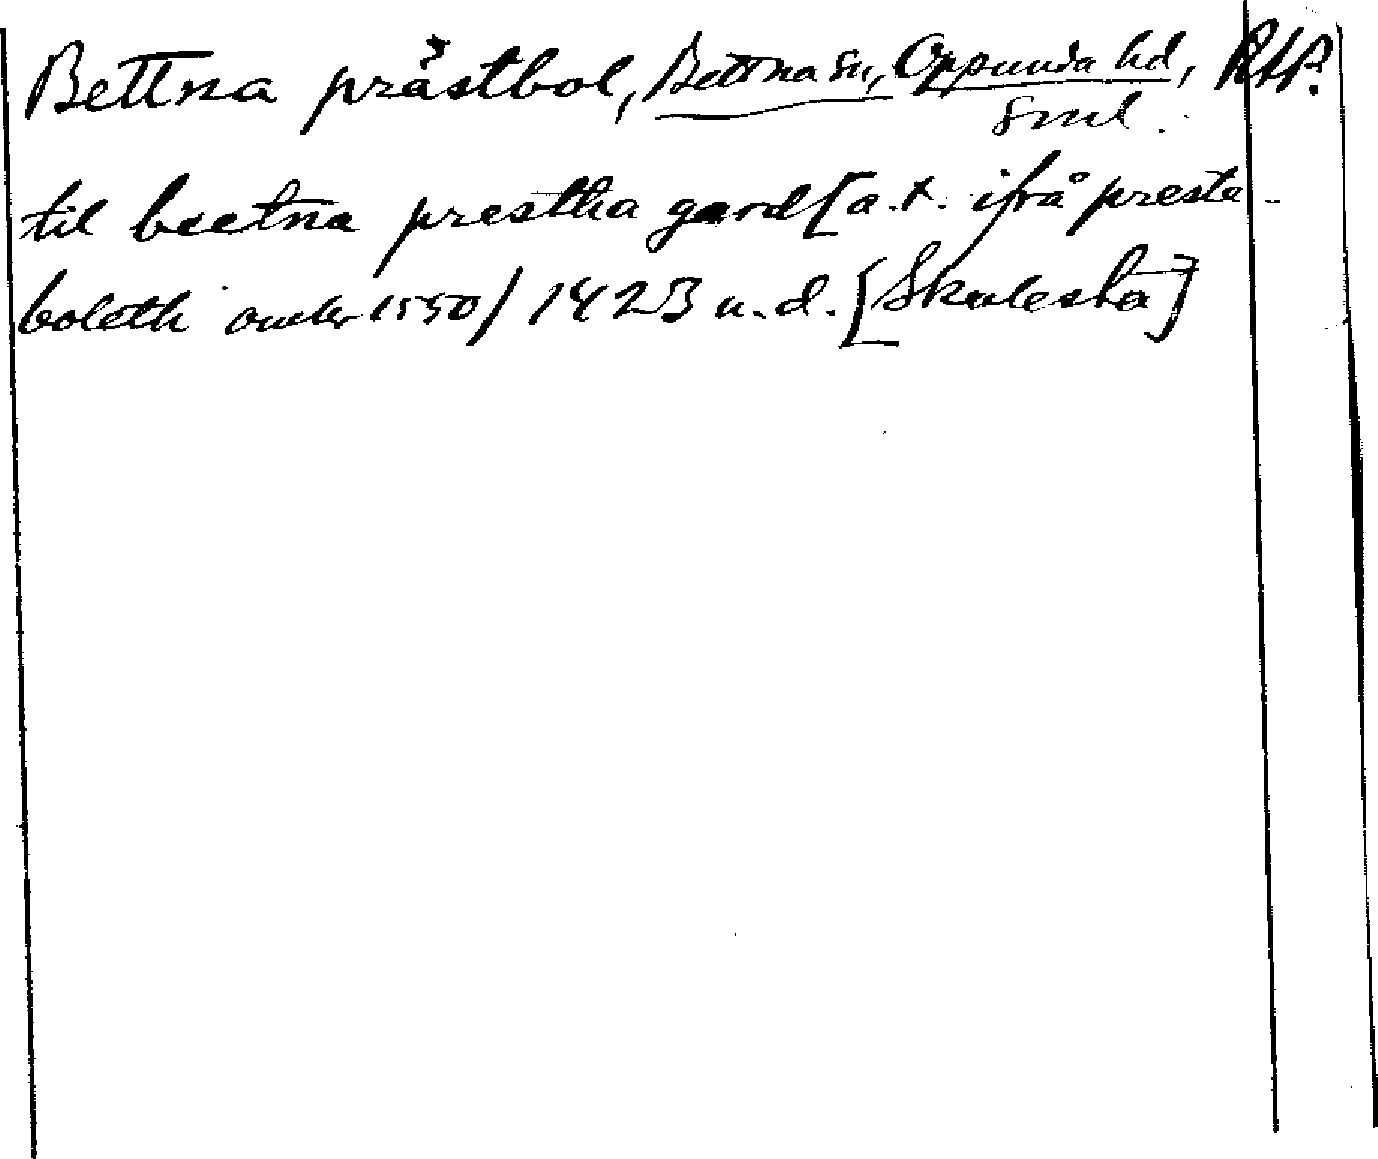 Bettna prästbol, Bettna sn, Oppunda hd, RAP.
Sml.
til beetna prestha gard [a.t. ifrå presta-
boleth omkr 1550/ 1423 u.d. [Skulesta]